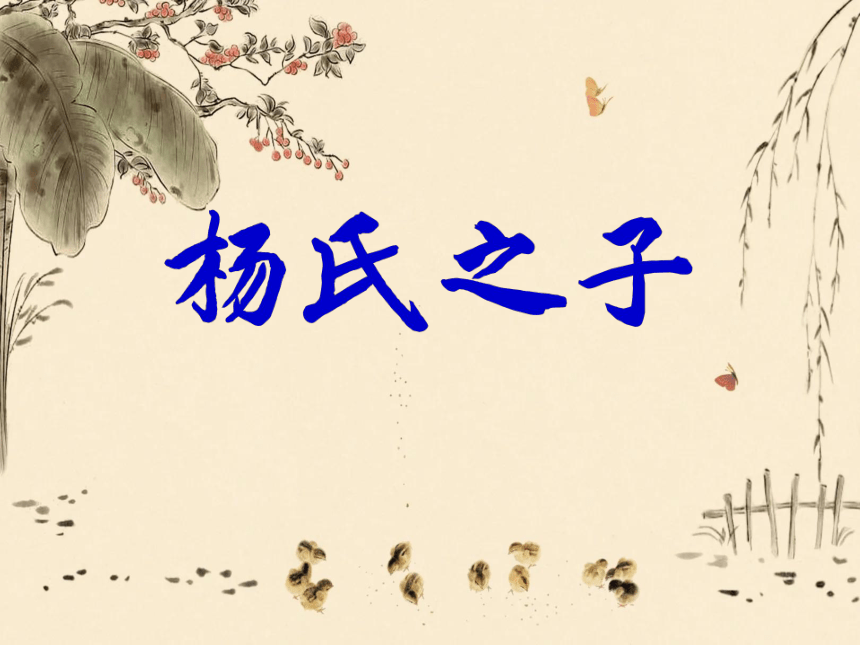 杨氏之子